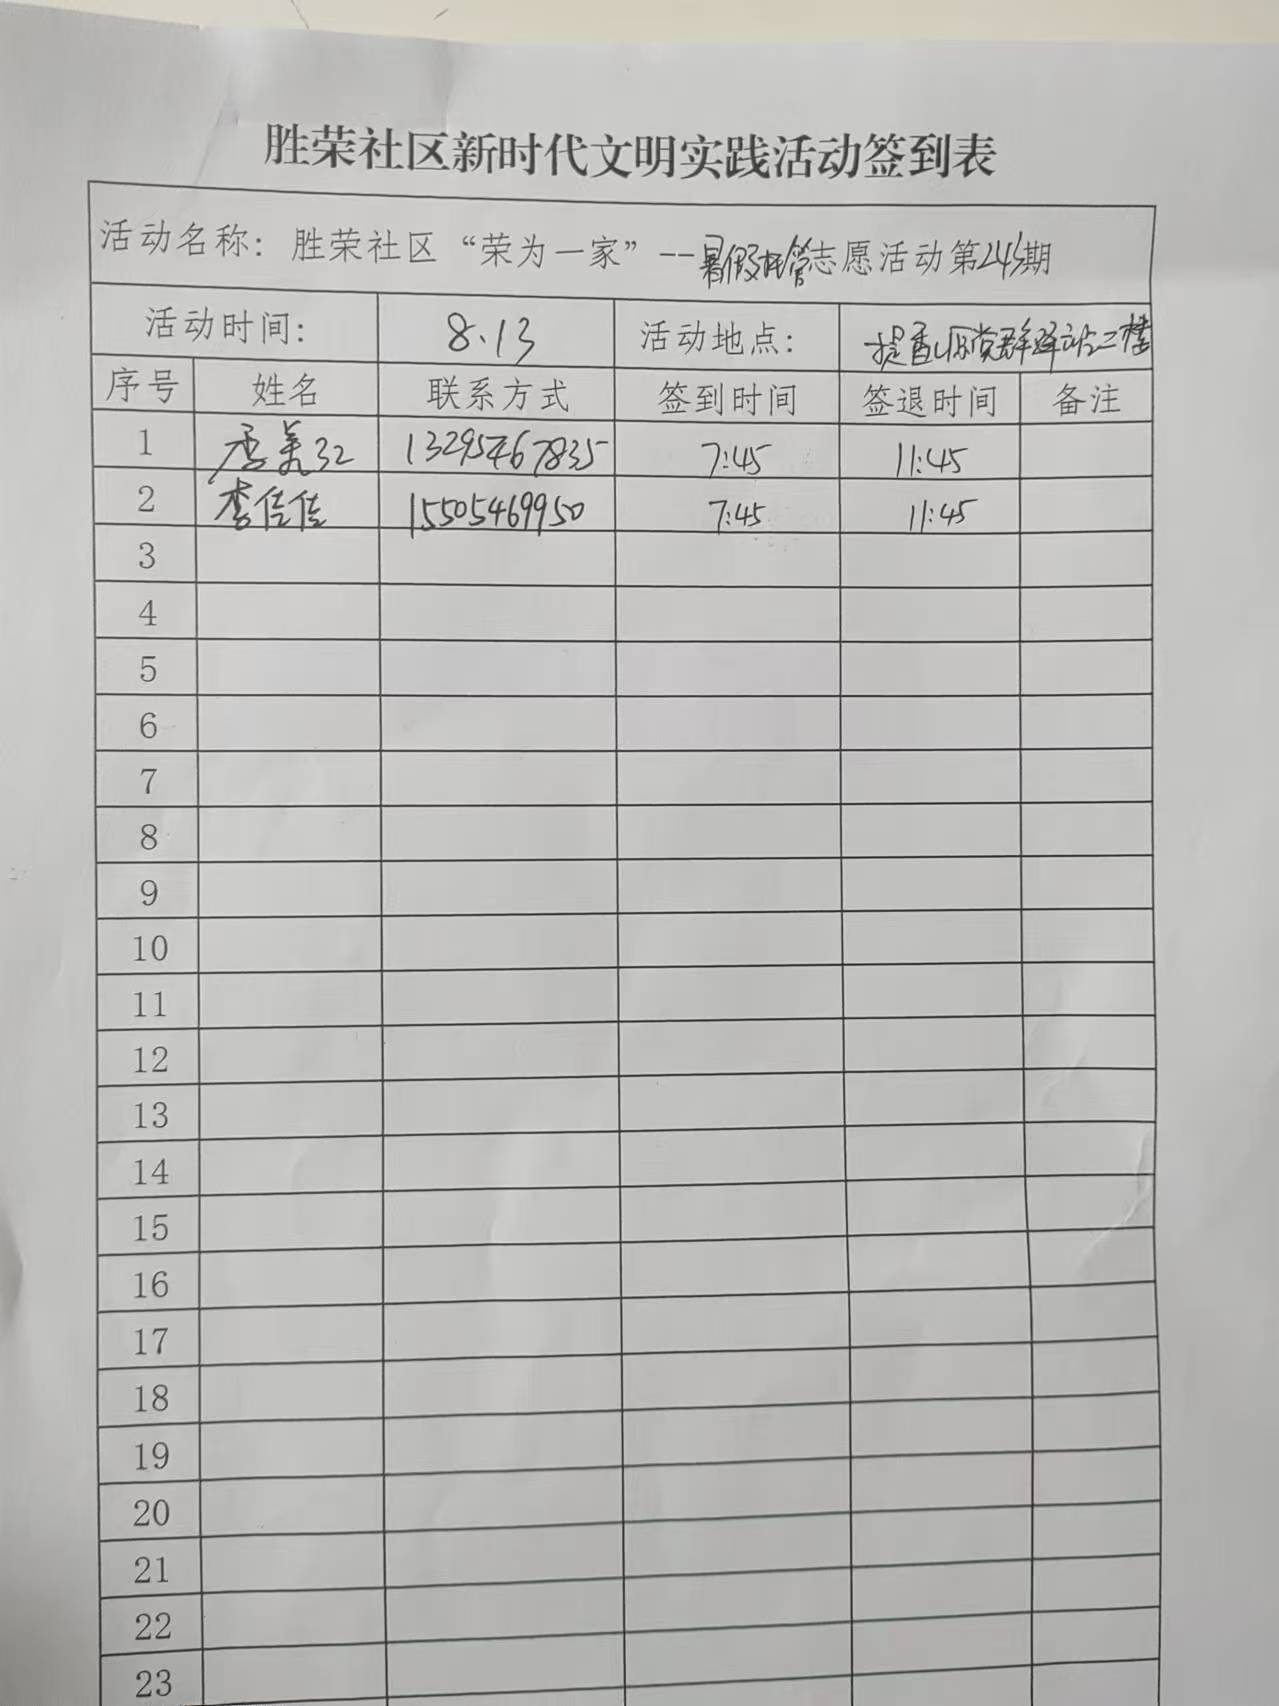 胜荣社区新时代文明实践活动签到表
活动名称：胜荣社区“荣为一家”--暑假托管志愿活动第245期
活动时间： 8.13 活动地点： 提香 党群驿站二楼
序号 姓名 联系方式 签到时间 签退时间 备注
1 李美 13295467835 7:45 11:45
2 李佳佳 15505469950 7:45 11:45
3
4
5
6
7
8
9
10
11
12
13
14
15
16
17
18
19
20
21
22
23